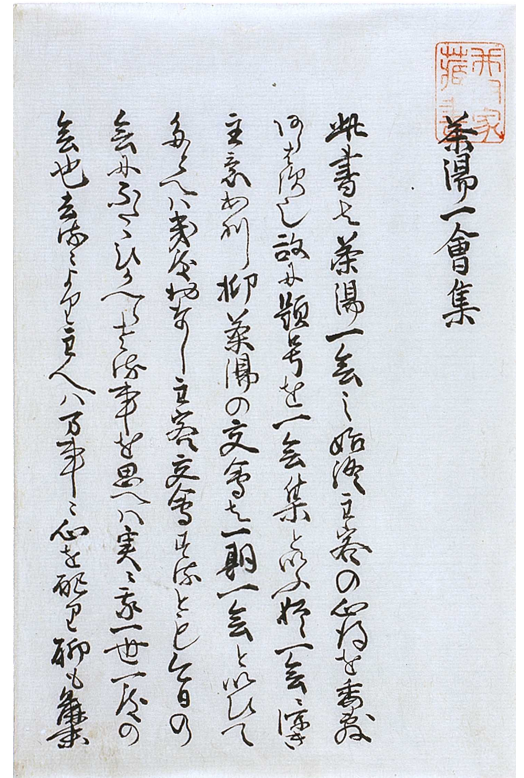 茶湯一會集
此書は茶湯一会之始終主客の心得を委敷
あらはす也故に題号を一会集といふ猶一会ニ深き
主意あり抑茶湯の交會は一期一会といひて
たとへハ幾度おなし主客交會するとも今日の
会にふたゝひかへらさる事を思へハ実ニ我一世一度の
会也去るニより主人ハ万事ニ心を配り聊も麁末